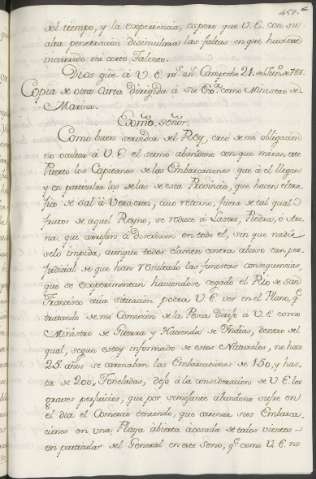 del tiempo, y la experiencia, espero que V.E. con su
alta penetracion disimulará las faltas en que hubiere
incurrido mi corto talento.
Dios gue. á V.E. ms. as. Campeche 21. de de 781.
Copia de otra Carta dirigida á su Exa. como Ministro de
Marina.
Exmo. Señor.
Como buen servidor del Rey, creo de mi obligacion
no ocultar á V.E. el sumo abandono con que miran este
Puerto los Capitanes de las Embarcaciones que á él llegan
y en particular los de las de esta Provincia, que hacen
de sal á Veracruz, cuyo retorno, fuera de tal qual
frutos de aquel Reyno, se reduce á Lastre, Piedra, ó Are
na que arrojan á discrecion en todo él, sin que nadie
velo impida, aunque todos clamen contra abuso tan per
judicial de que han resultado las funestas consequencias,
que se experimentan haviendose cegado el Rio de San
Francisco cuia situacion podrá V.E. ver en el Plano, qe.
tratando de mi Comision de la Pena dirijo á V.E. como
Ministro de Guerra y Hacienda de Indias, dentro del
qual, segun estoy informado de estos Naturales, no hace
25 años se carenaban las Embarcaciones de 150, y has
ta de 200, Toneladas, dejo á la consideracion de V.E. los
graves perjuicios, que por semejante abandono sufre en
el dia el Comercio teniendo, que carenar sus Embarca
ciones en una Playa abierta de todos vientos
en particular del General en este Seno, qe. como V.E. no